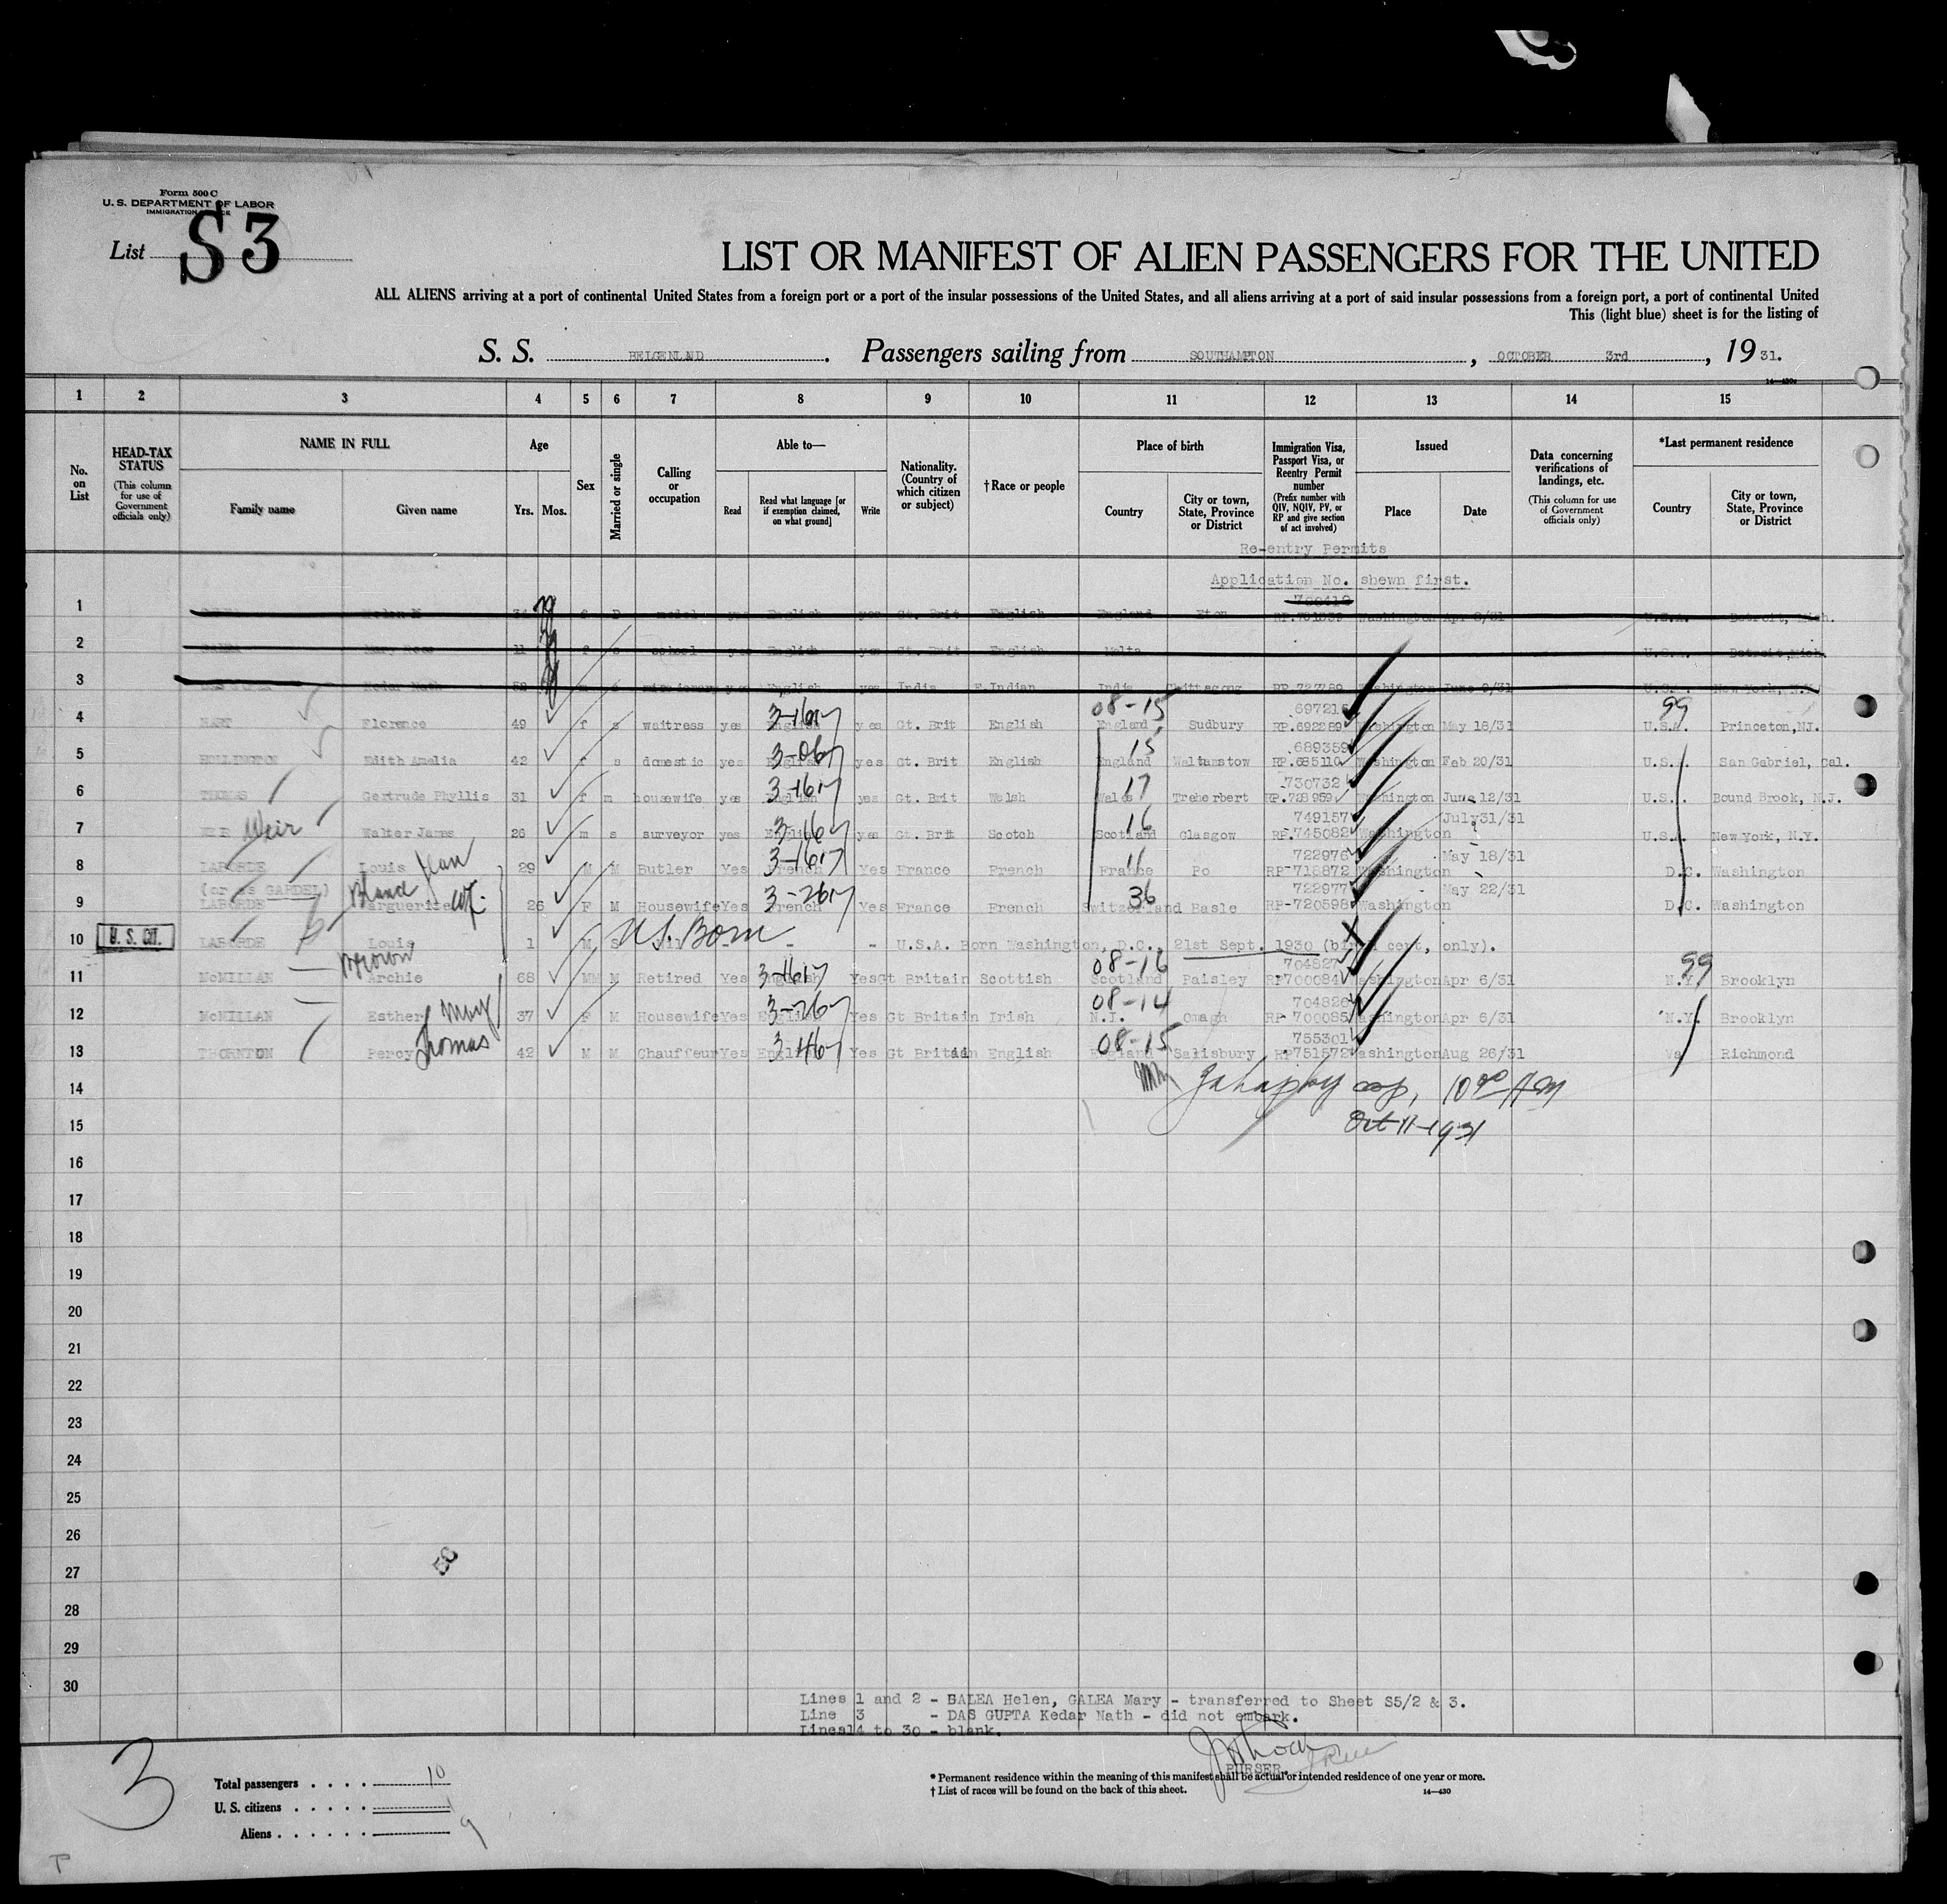 Form 500 C
U. S. DEPARTMENT OF LABOR
IMMIGRATION
List S3
LIST OR MANIFEST OF ALIEN PASSENGERS FOR THE UNITED
ALL ALIENS arriving at a port of continental United States from a foreign port or a port of the insular possessions of the United States, and all aliens arriving at a port of said insular possessions from a foreign port, a port of continental United
This (light blue) sheet is for the listing of
S. S. BELGENLAND. Passengers sailing from SOUTHAMPTON, OCTOBER 3rd, 1931.
1 2 3 4 5 6 7 8 9 10 11 12 13 14 15
No. on List
HEAD-TAX STATUS (This column for use of Government officials only)
NAME IN FULL Family name Given name
Age Yrs. Mos.
Sex
Married or single
Calling or occupation
Able to— Read Read what language [or if exemption claimed, on what ground] Write
Nationality. (Country of which citizen or subject)
† Race or people
Place of birth Country City or town, State, Province or District
Immigration Visa, Passport Visa, or Reentry Permit number (Prefix number with QIV, NQIV, PV, or RP and give section of act involved)
Issued Place Date
Data concerning verifications of landings, etc. (This column for use of Government officials only)
*Last permanent residence Country City or town, State, Province or District
Re-entry Permits
Application No. shewn first.
1 English yes Gt. Brit English England Eton U.S.A. Detroit, Mich.
2 Mary 11 f s school yes English yes Gt. Brit English Malta Detroit, Mich.
3 Kedar Nath English yes India E.Indian India Chittagong RP.727289 Washington New York, N.Y.
4 Florence 49 f s waitress yes English 3-1617 yes Gt. Brit English 08-15 England Sudbury 697216 RP.692289 Washington May 18/31 99 U.S.A. Princeton,NJ.
5 HOLLINGTON Edith Amelia 42 f s domestic yes English yes Gt. Brit English 15 England Waltamstow 689359 RP.685110 Washington Feb 20/31 U.S.A. San Gabriel, Cal.
6 THOMAS Gertrude Phyllis 31 f m housewife yes English 3-1617 yes Gt. Brit Welsh 17 Wales Treherbert 730732 RP.728959 Washington June 12/31 U.S.A. Bound Brook, N.J.
7 Weir Walter James 26 m s surveyor yes English yes Gt. Brit Scotch 16 Scotland Glasgow 749157 RP.745082 Washington July 31/31 U.S.A. New York, N.Y.
8 LABORDE Louis Jean 29 M M Butler Yes French Yes France French France Po 722976 Washington May 18/31 D.C. Washington
(or as GARDEL)
9 LABORDE Marguerite wf. 26 F M Housewife Yes French Yes France French 36 Switzerland Basle 722977 RP-720598 Washington May 22/31 D.C. Washington
10 U. S. CIT. LABORDE Louis 1 M S U.S. Born - U.S.A. Born Washington, D.C., 21st Sept. 1930 (birth cert, only).
11 McMILLAN Archie Brown 68 M M Retired Yes English Yes Gt Britain Scottish 08-16 Scotland Paisley RP700084 Washington Apr 6/31 99 N.Y. Brooklyn
12 McMILLAN Esther May 37 F M Housewife Yes English Yes Gt Britain Irish 08-14 N.I. Omagh 704826 RP 700085 Washington Apr 6/31 N.Y. Brooklyn
13 THORNTON Percy Thomas 42 M M Chauffeur Yes English Yes Gt Britain English 08-15 England Salisbury 755301 RP751572 Washington Aug 26/31 Va Richmond
14 10 00 AM
15 Oct 11-1931
16
17
18
19
20
21
22
23
24
25
26
27
28
29
30
Lines 1 and 2 - GALEA Helen, GALEA Mary - transferred to Sheet S5/2 & 3.
Line 3 - DAS GUPTA Kedar Nath - did not embark.
Lines14 to 30 - blank.
PURSER.
3
Total passengers . . . . 10
U. S. citizens . . . . . 1
Aliens . . . . . . 9
* Permanent residence within the meaning of this manifest shall be actual or intended residence of one year or more.
† List of races will be found on the back of this sheet.
14—430